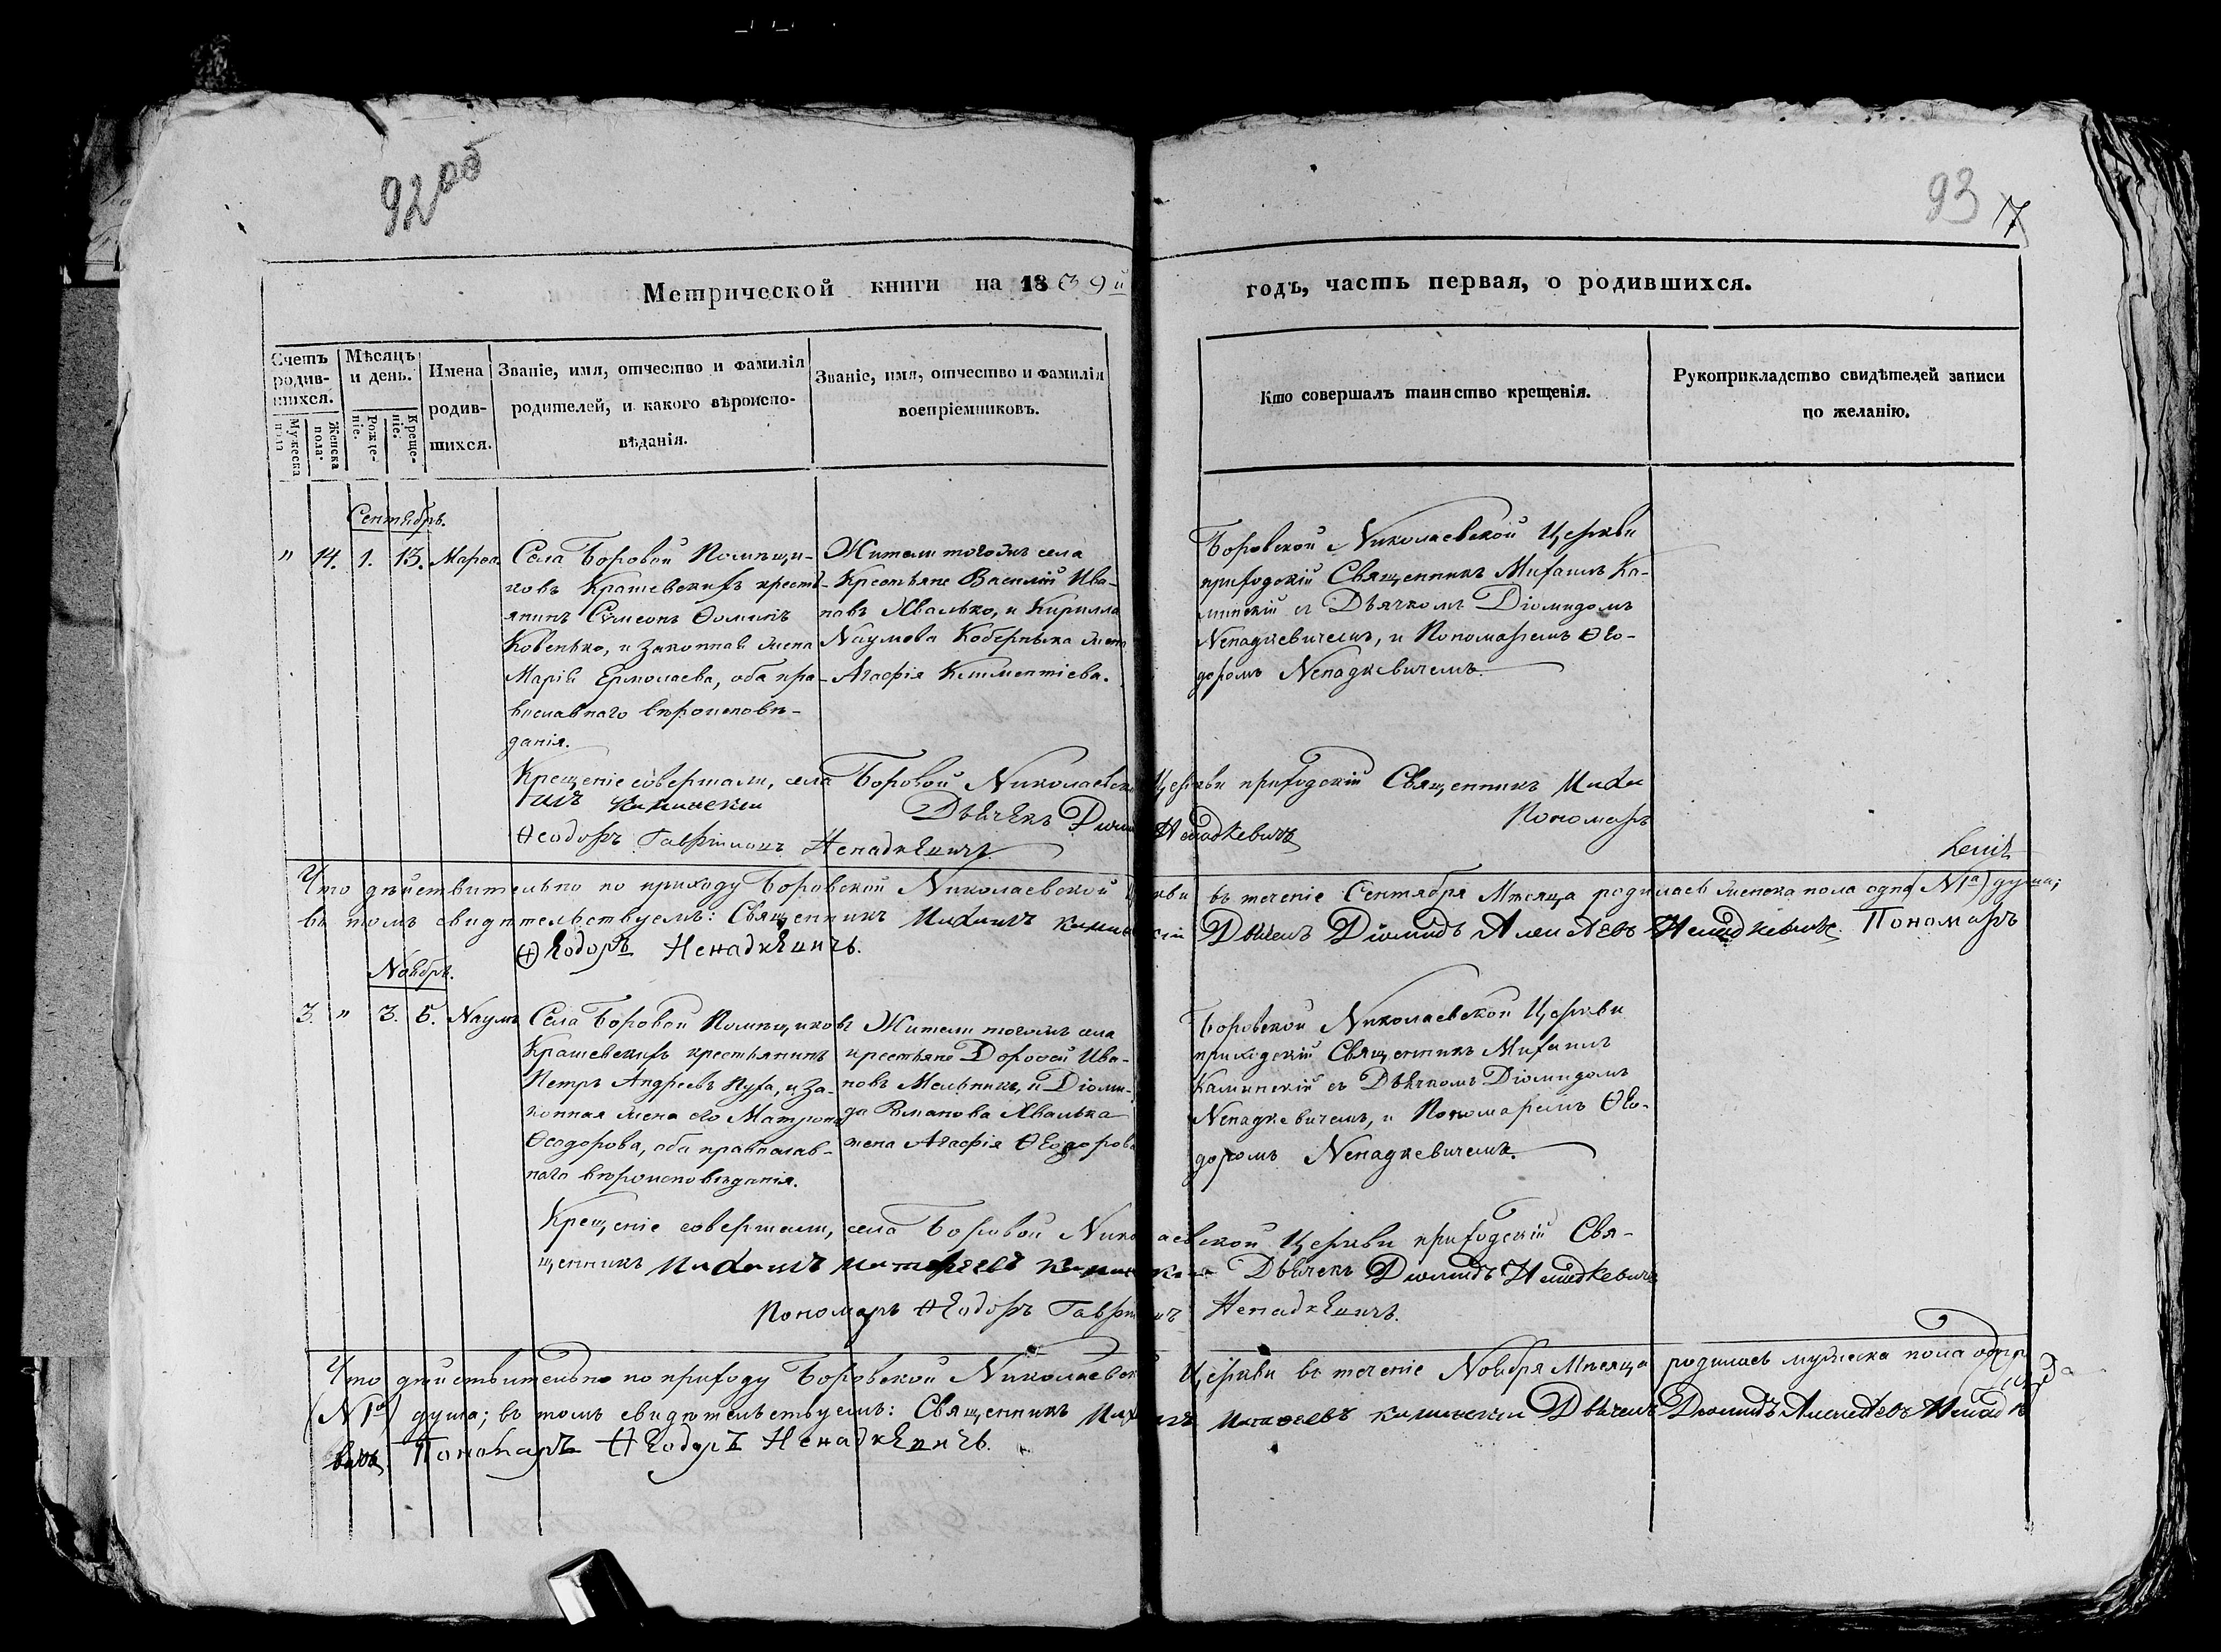 92 об
93 7
Метрической книги на 1839й
годъ, часть первая, о родившихся.
Счетъ родив-
шихся.
Мужеска пола
Женска пола.
Мѣсяцъ
и день.
Рожде-
ніе.
Креще-
ніе.
Имена
родив-
шихся.
Званіе, имя, отчество и фамилія
родителей, и какого вѣроиспо-
вѣданія.
Званіе, имя, отчество и фамилія
воспріемниковъ.
Кто совершалъ таинство крещенія.
Рукоприкладство свидѣтелей записи
по желанію.
Сентябрь.
" 14. 1. 13. Марѳа
Села Боровой Помѣщи-
ковъ Крашевскихъ кресть-
янинъ Сѵмеонъ Ѳоминъ
Ковенько, и законная жена
Марія Ермолаева, оба пра-
вославнаго вѣроисповѣ-
данія.
Жители тогожъ села
Крестьяне Василій Ива-
новъ Хвалько, и Кирилла
Наумова Коберныка жена
Агафія Климентіева.
Боровской Николаевской Церкви
приходскій Священникъ Михаилъ Ка-
минскій съ Дьячкомъ Діомидомъ
Ненадкевичемъ, и Пономаремъ Ѳео-
доромъ Ненадкевичемъ.
Крещеніе совершали, села Боровой Николаевской Церкви приходскій Священникъ Миха
илъ Каминскій Дьячекъ Діомидъ Ненадкевичъ Пономарь
Ѳеодоръ Гавріиловъ Ненадкевичъ.
Что дѣйствительно по приходу Боровской Николаевской Церкви въ теченіе Сентября Мѣсяца родилась женска пола одна (№1а) душа;
въ томъ свидѣтельствуемъ: Священникъ Михаилъ Каминскій Дьячекъ Діомидъ Алексѣевъ Ненадкевичъ. Пономарь
Ѳеодоръ Ненадкевичъ.
Ноябрь.
3. " 3. 5. Наумъ
Села Боровой Помѣщиковъ
Крашевскихъ крестьянинъ
Петръ Андреевъ Пуха, и за-
конная жена его Матрона
Ѳеодорова, оба православ-
наго вѣроисповѣданія.
Жители тогожъ села
крестьяне Дороѳей Ива-
новъ Мельникъ, и Діоми-
да Романова Хвалька
жена Агафія Ѳеодорова
Боровской Николаевской Церкви
приходскій Священникъ Михаилъ
Каминскій съ Дьячкомъ Діомидомъ
Ненадкевичемъ, и Пономаремъ Ѳео-
доромъ Ненадкевичемъ.
Крещеніе совершали, села Боровой Николаевской Церкви приходскій Свя-
щенникъ Михаилъ Матѳеевъ Каминскій Дьячекъ Діомидъ Ненадкевичъ
Пономарь Ѳеодоръ Гавріиловъ Ненадкевичъ.
Что дѣйствительно по приходу Боровской Николаевской Церкви въ теченіе Ноября Мѣсяца родилась мужеска пола одна
(№1а) душа; въ томъ свидѣтельствуемъ: Священникъ Михаилъ Матѳеевъ Каминскій Дьячекъ Діомидъ Алексѣевъ Ненадке
вичъ Пономарь Ѳеодоръ Ненадкевичъ.